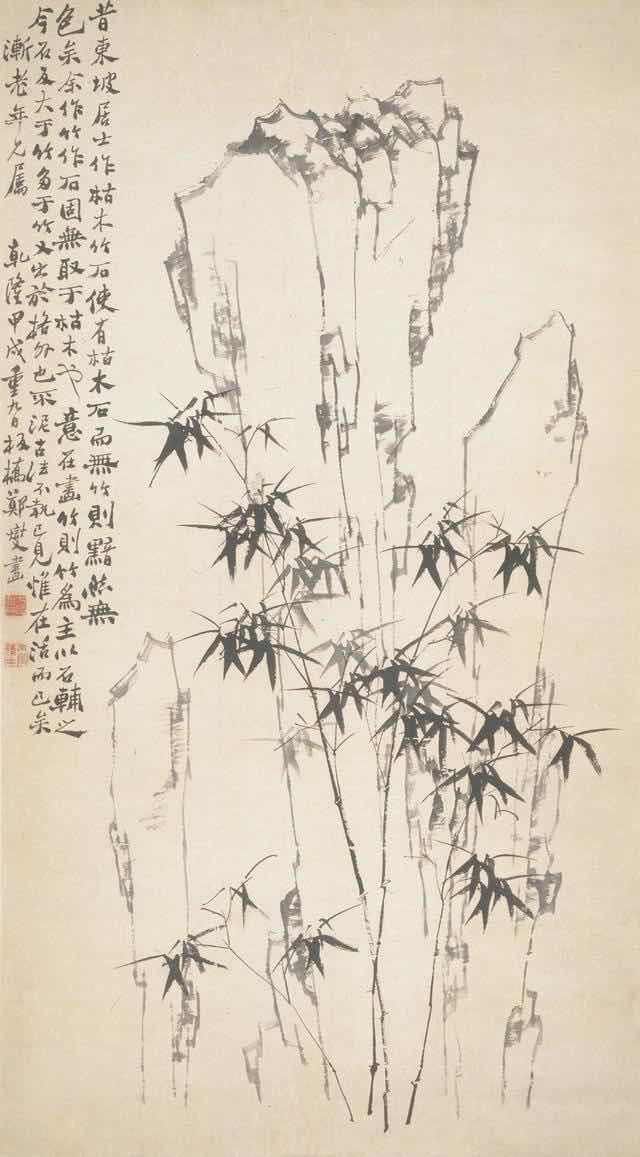 昔東坡居士作枯木竹石使有枯木石而無竹則黯然無
色矣余作竹作石固無取于枯木也意在畫竹則竹為主以石輔之
今石反大于竹多于竹又出於格外也不泥古法不執己見惟在活而已矣
漸老年兄屬 乾隆甲戌重九日板橋鄭燮畫